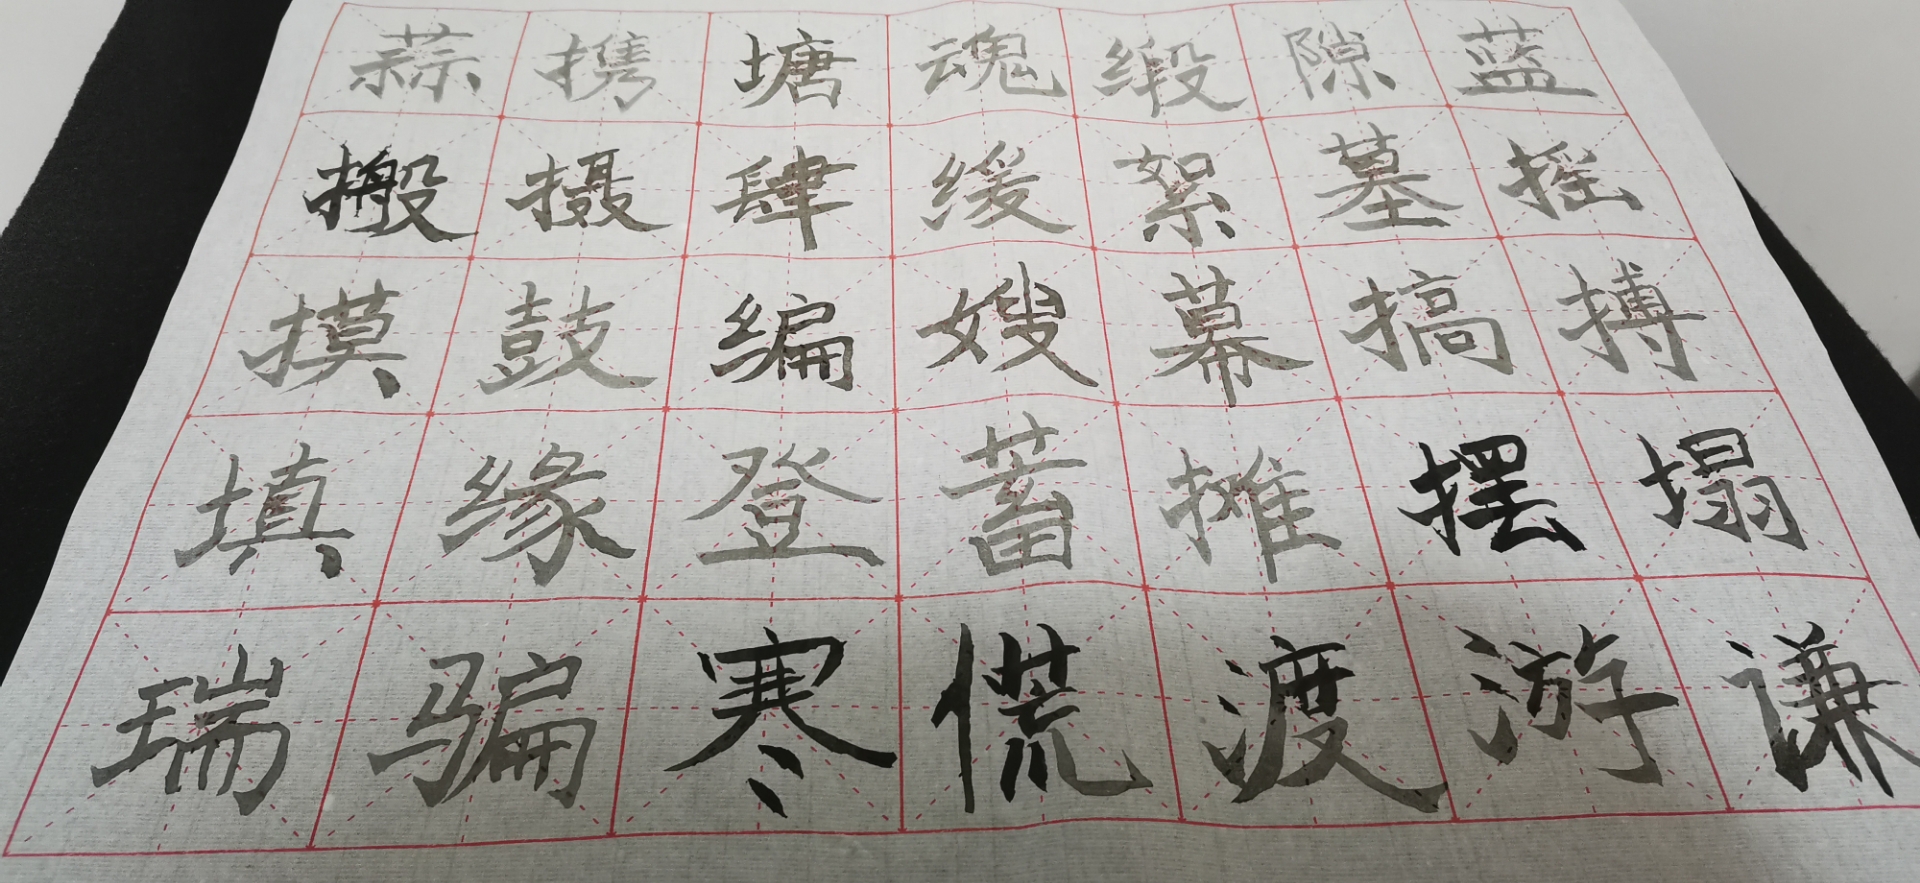 蒜携塘魂缎隙蓝
搬摄肆缓絮墓摇
摸鼓编嫂幕搞搏
填缘登蓄摊摆塌
瑞骗寒慌渡游谦